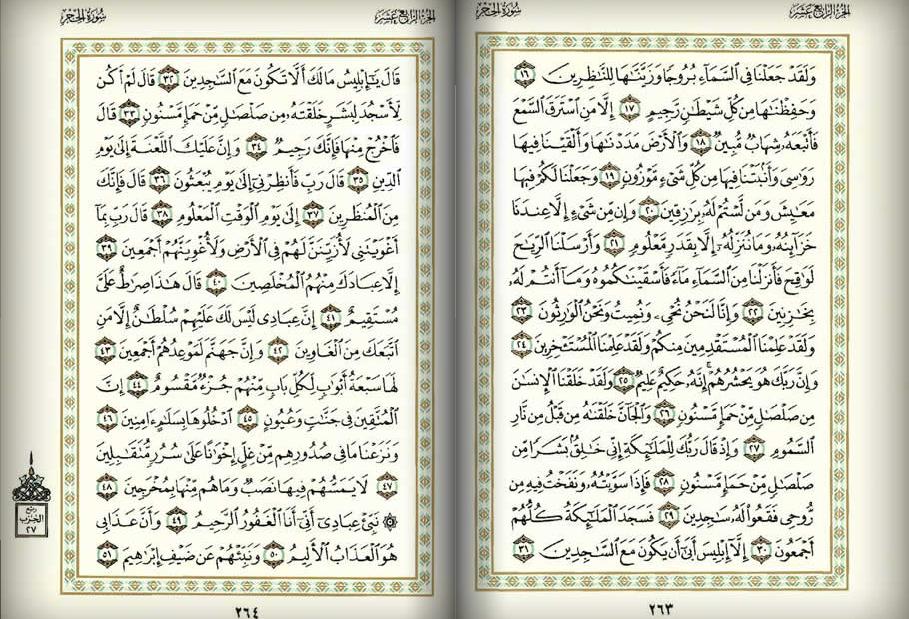 الجزء الرابع عشر
سورة الحجر
وَلَقَدْ جَعَلْنَا فِي السَّمَاءِ بُرُوجًا وَزَيَّنَّاهَا لِلنَّاظِرِينَ ١٦
وَحَفِظْنَاهَا مِن كُلِّ شَيْطَانٍ رَّجِيمٍ ١٧ إِلَّا مَنِ اسْتَرَقَ السَّمْعَ
فَأَتْبَعَهُ شِهَابٌ مُّبِينٌ ١٨ وَالْأَرْضَ مَدَدْنَاهَا وَأَلْقَيْنَا فِيهَا
رَوَاسِيَ وَأَنبَتْنَا فِيهَا مِن كُلِّ شَيْءٍ مَّوْزُونٍ ١٩ وَجَعَلْنَا لَكُمْ فِيهَا
مَعَايِشَ وَمَن لَّسْتُمْ لَهُ بِرَازِقِينَ ٢٠ وَإِن مِّن شَيْءٍ إِلَّا عِندَنَا
خَزَائِنُهُ وَمَا نُنَزِّلُهُ إِلَّا بِقَدَرٍ مَّعْلُومٍ ٢١ وَأَرْسَلْنَا الرِّيَاحَ
لَوَاقِحَ فَأَنزَلْنَا مِنَ السَّمَاءِ مَاءً فَأَسْقَيْنَاكُمُوهُ وَمَا أَنتُمْ لَهُ
بِخَازِنِينَ ٢٢ وَإِنَّا لَنَحْنُ نُحْيِي وَنُمِيتُ وَنَحْنُ الْوَارِثُونَ ٢٣
وَلَقَدْ عَلِمْنَا الْمُسْتَقْدِمِينَ مِنكُمْ وَلَقَدْ عَلِمْنَا الْمُسْتَأْخِرِينَ ٢٤
وَإِنَّ رَبَّكَ هُوَ يَحْشُرُهُمْ إِنَّهُ حَكِيمٌ عَلِيمٌ ٢٥ وَلَقَدْ خَلَقْنَا الْإِنسَانَ
مِن صَلْصَالٍ مِّنْ حَمَإٍ مَّسْنُونٍ ٢٦ وَالْجَانَّ خَلَقْنَاهُ مِن قَبْلُ مِن نَّارِ
السَّمُومِ ٢٧ وَإِذْ قَالَ رَبُّكَ لِلْمَلَائِكَةِ إِنِّي خَالِقٌ بَشَرًا مِّن
صَلْصَالٍ مِّنْ حَمَإٍ مَّسْنُونٍ ٢٨ فَإِذَا سَوَّيْتُهُ وَنَفَخْتُ فِيهِ مِن
رُّوحِي فَقَعُوا لَهُ سَاجِدِينَ ٢٩ فَسَجَدَ الْمَلَائِكَةُ كُلُّهُمْ
أَجْمَعُونَ ٣٠ إِلَّا إِبْلِيسَ أَبَىٰ أَن يَكُونَ مَعَ السَّاجِدِينَ ٣١
٢٦٣
الجزء الرابع عشر
سورة الحجر
قَالَ يَا إِبْلِيسُ مَا لَكَ أَلَّا تَكُونَ مَعَ السَّاجِدِينَ ٣٢ قَالَ لَمْ أَكُن
لِّأَسْجُدَ لِبَشَرٍ خَلَقْتَهُ مِن صَلْصَالٍ مِّنْ حَمَإٍ مَّسْنُونٍ ٣٣ قَالَ
فَاخْرُجْ مِنْهَا فَإِنَّكَ رَجِيمٌ ٣٤ وَإِنَّ عَلَيْكَ اللَّعْنَةَ إِلَىٰ يَوْمِ
الدِّينِ ٣٥ قَالَ رَبِّ فَأَنظِرْنِي إِلَىٰ يَوْمِ يُبْعَثُونَ ٣٦ قَالَ فَإِنَّكَ
مِنَ الْمُنظَرِينَ ٣٧ إِلَىٰ يَوْمِ الْوَقْتِ الْمَعْلُومِ ٣٨ قَالَ رَبِّ بِمَا
أَغْوَيْتَنِي لَأُزَيِّنَنَّ لَهُمْ فِي الْأَرْضِ وَلَأُغْوِيَنَّهُمْ أَجْمَعِينَ ٣٩
إِلَّا عِبَادَكَ مِنْهُمُ الْمُخْلَصِينَ ٤٠ قَالَ هَٰذَا صِرَاطٌ عَلَيَّ
مُسْتَقِيمٌ ٤١ إِنَّ عِبَادِي لَيْسَ لَكَ عَلَيْهِمْ سُلْطَانٌ إِلَّا مَنِ
اتَّبَعَكَ مِنَ الْغَاوِينَ ٤٢ وَإِنَّ جَهَنَّمَ لَمَوْعِدُهُمْ أَجْمَعِينَ ٤٣
لَهَا سَبْعَةُ أَبْوَابٍ لِّكُلِّ بَابٍ مِّنْهُمْ جُزْءٌ مَّقْسُومٌ ٤٤ إِنَّ
الْمُتَّقِينَ فِي جَنَّاتٍ وَعُيُونٍ ٤٥ ادْخُلُوهَا بِسَلَامٍ آمِنِينَ ٤٦
وَنَزَعْنَا مَا فِي صُدُورِهِم مِّنْ غِلٍّ إِخْوَانًا عَلَىٰ سُرُرٍ مُّتَقَابِلِينَ
٤٧ لَا يَمَسُّهُمْ فِيهَا نَصَبٌ وَمَا هُم مِّنْهَا بِمُخْرَجِينَ ٤٨
۞ نَبِّئْ عِبَادِي أَنِّي أَنَا الْغَفُورُ الرَّحِيمُ ٤٩ وَأَنَّ عَذَابِي
هُوَ الْعَذَابُ الْأَلِيمُ ٥٠ وَنَبِّئْهُمْ عَن ضَيْفِ إِبْرَاهِيمَ ٥١
ربع
الحزب
٢٧
٢٦٤